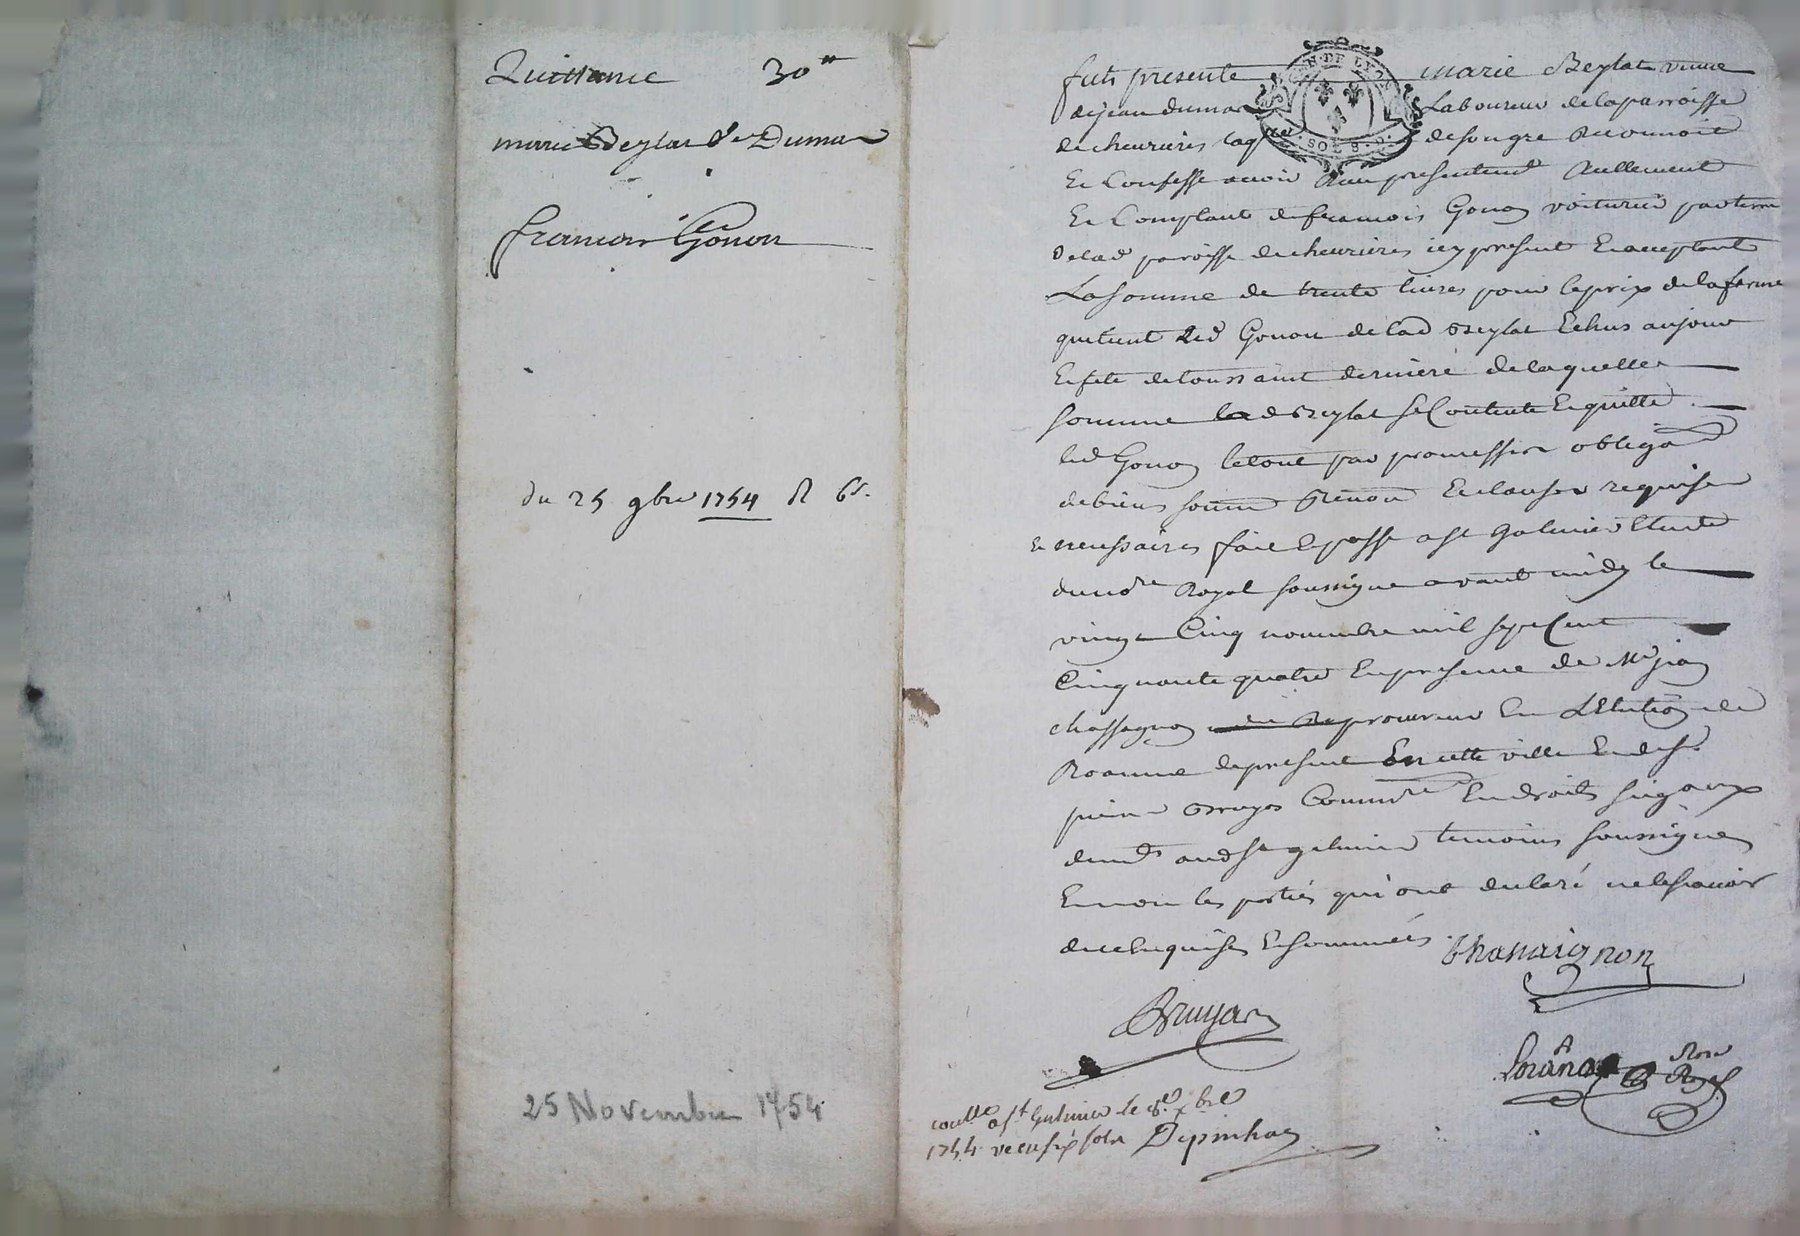 Quittance 30"
marie Beylat Ve Dumas
francois Gonon
du 25 9bre 1754 R 6s.
25 Novembre 1754
GEN. DE LYON
SOLS
fut presente marie Beylat veuve
de jean dumas Laboureur de la parroisse
de chevrieres laq de son gre Reconnoit
Et Confesse avoir Reellement
Et Comptant de francois Gonon voiturier par terre
de lad paroisse de chevrieres icy present Et acceptant
La somme de trente livres pour le prix de la ferme
que tient led Gonon de lad Beylat Echus au jour
Et fete de toussaint derniere de laquelle
somme lad Beylat se Contente Et quitte
led Gonon le tout par promesses obligaon
de biens soum Renon Et clauses requises
Et necessaires fait Et passé a st Galmier Etude
du nore Royal soussigné avant midy le
vingt Cinq novembre mil sept Cent
Cinquante quatre En presence de Me jean
chassagnon procureur En L'Election de
Roanne de present En cette ville Et de sr
pierre Bruyas Commis En droits
dud st galmier temoins soussignes
Et non les parties qui ont declaré ne le scavoir
de ce Enquises Et sommées
Chassaignon
Bruyas
Nore Royal
conlle a st Galmier le 8e xbre
1754 recu six sols Depinhac